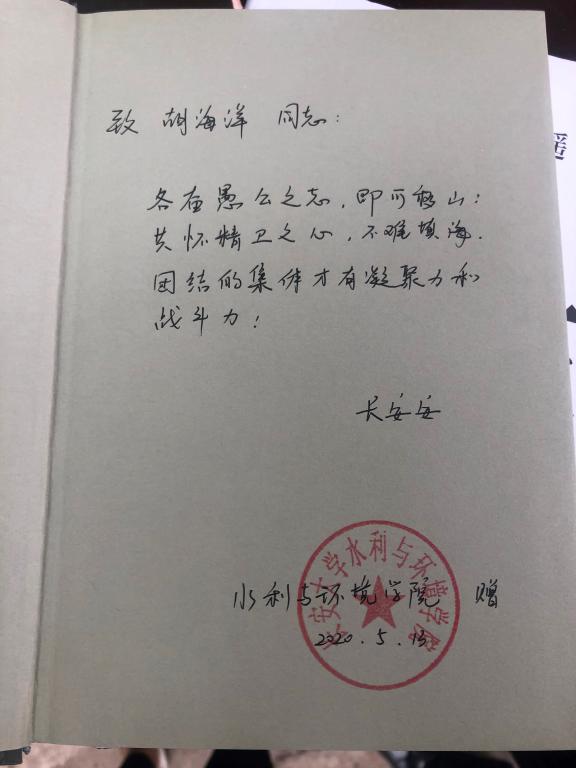 致 胡海洋 同志：
各奋愚公之志，即可移山；
共怀精卫之心，不难填海．
团结的集体才有凝聚力和
战斗力！
长安安
长安大学水利与环境学院
水利与环境学院 赠
2020.5.13
遥